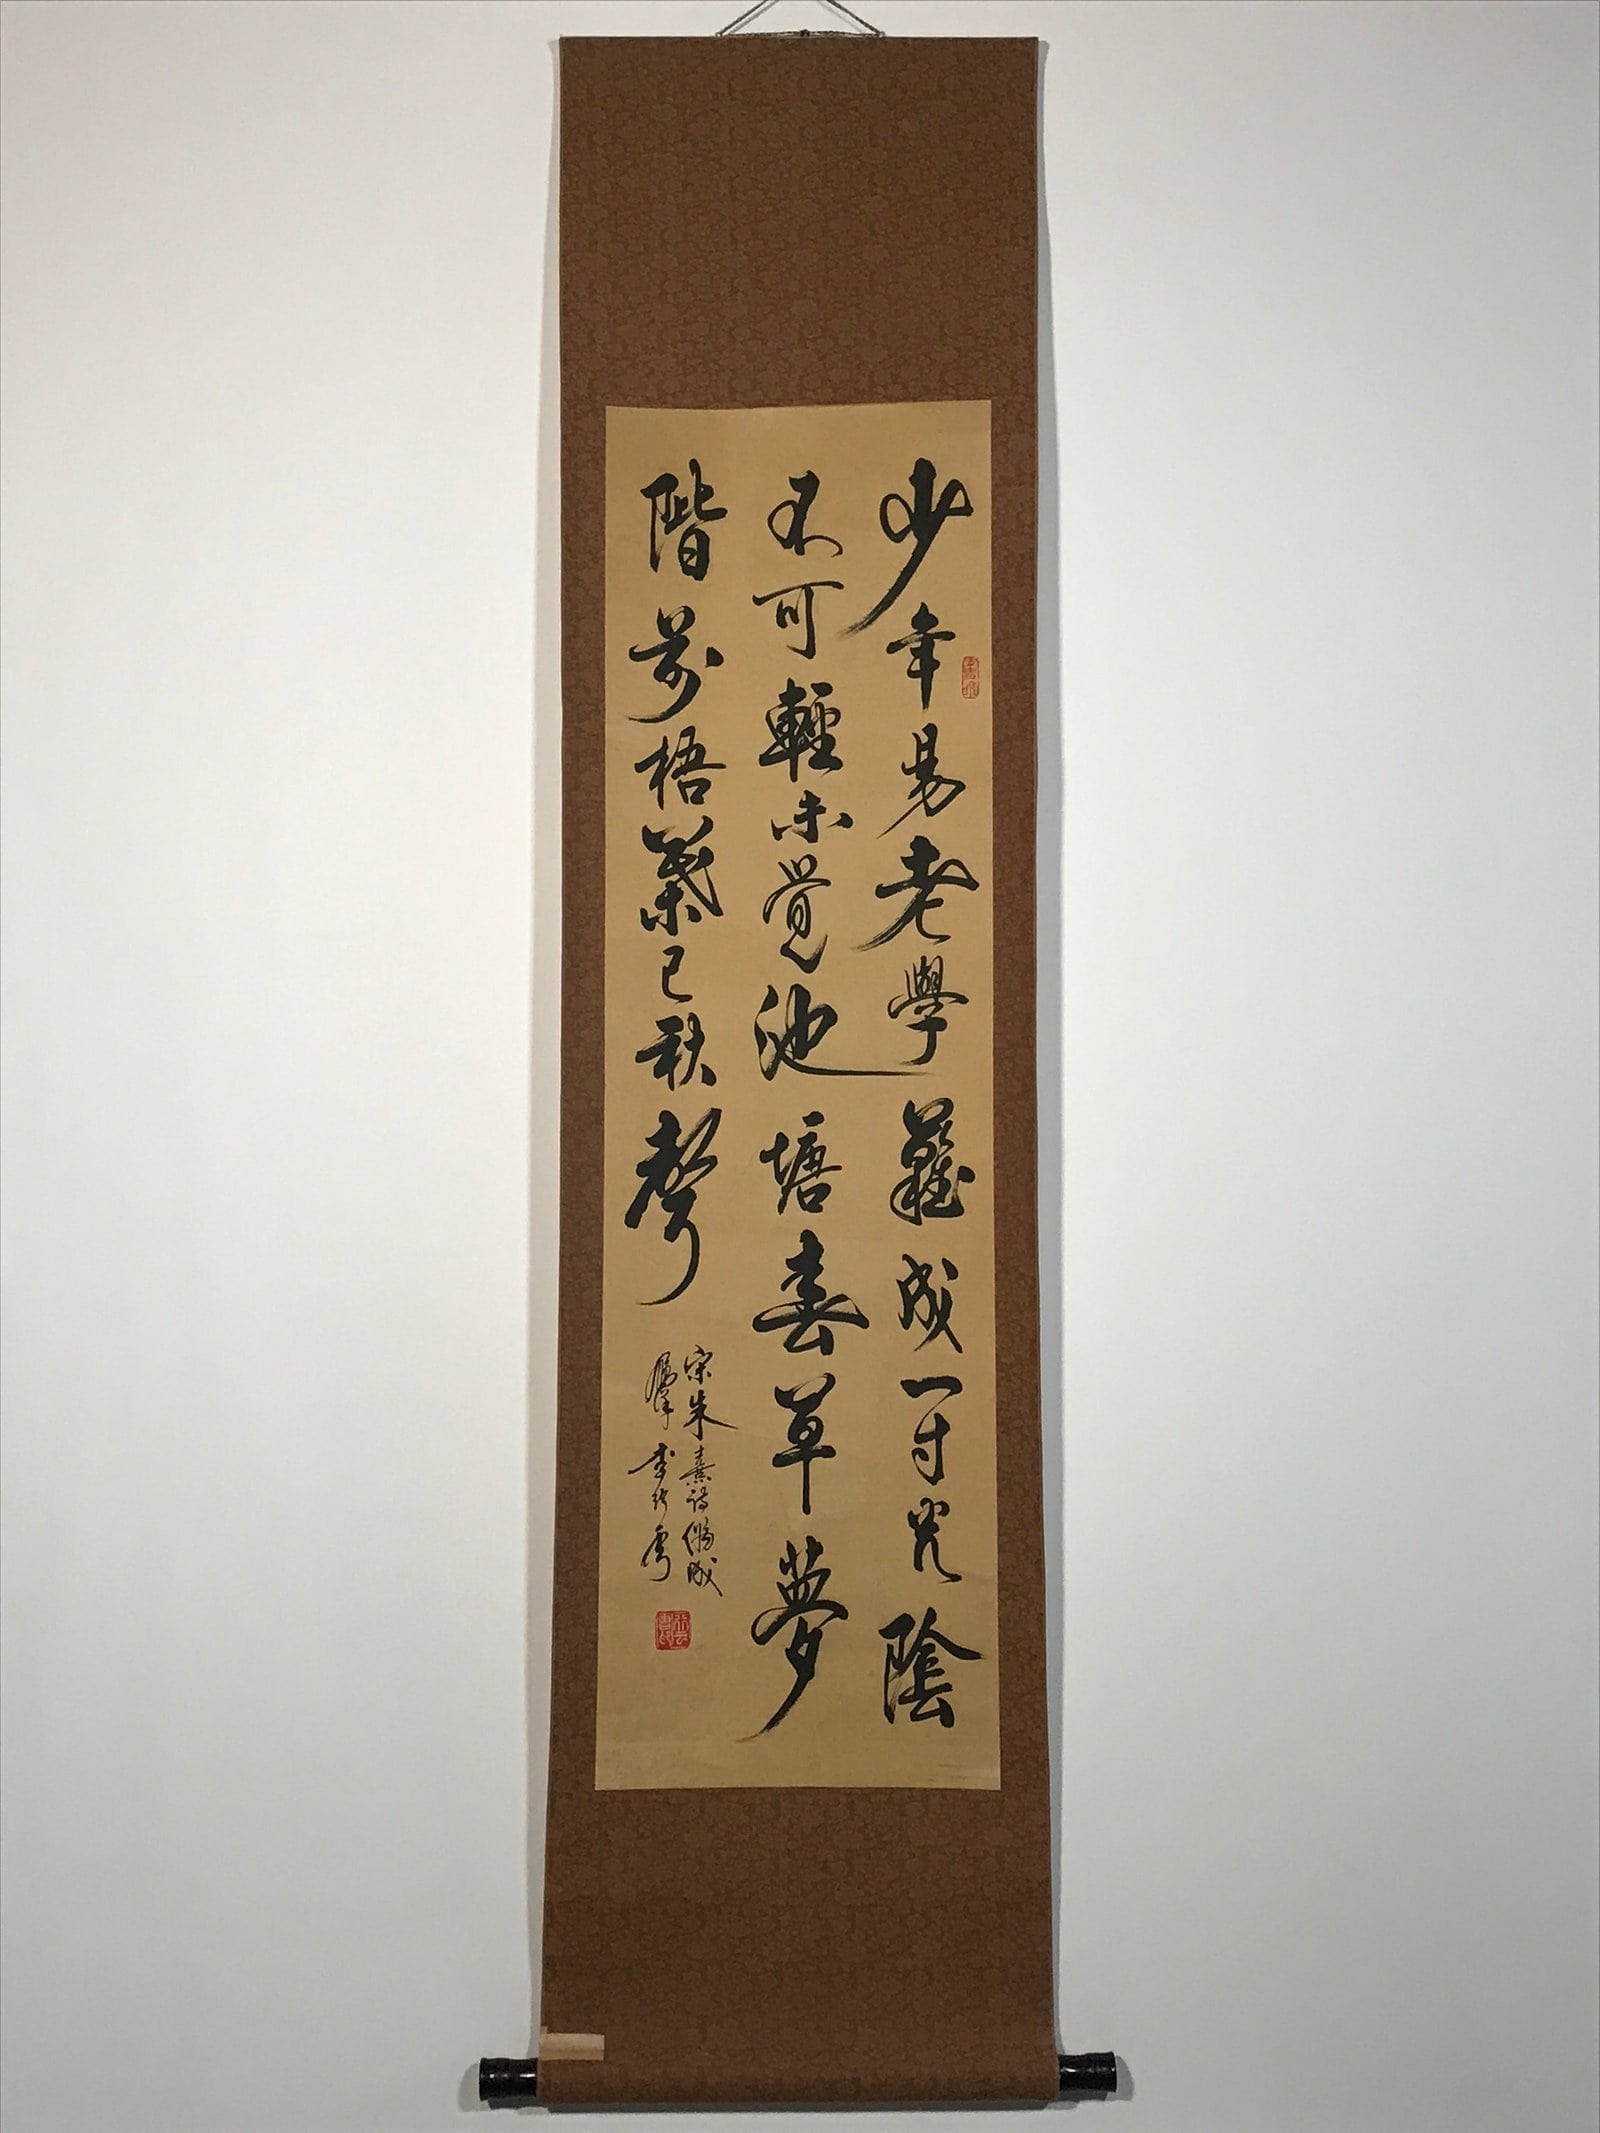 少年易老學難成一寸光陰
不可輕未覺池塘春草夢
階前梧葉已秋聲
宋朱熹詩偶成
李行雲
行雲書印